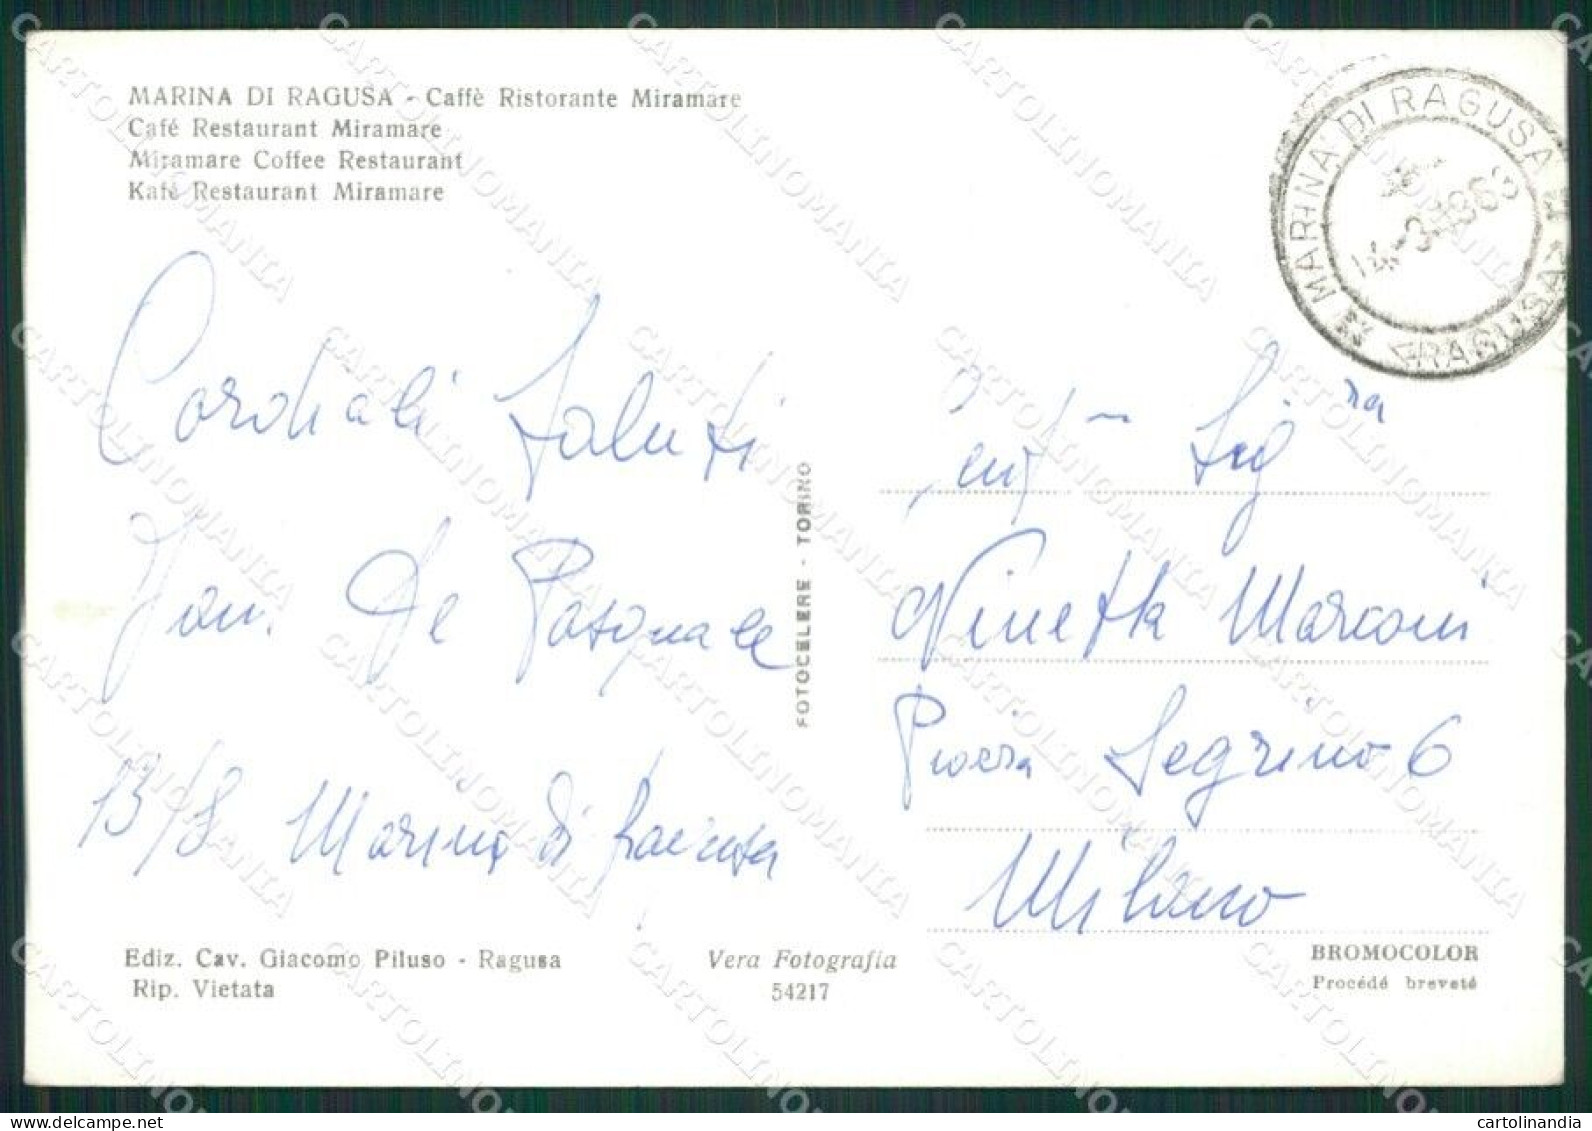 MARINA DI RAGUSA - Caffè Ristorante Miramare
Café Restaurant Miramare
Miramare Coffee Restaurant
Kafé Restaurant Miramare
MARINA DI RAGUSA
14-3-1963
(RAGUSA)
Cordiali Saluti
De Pasquale
13/8 Marina di Ragusa
FOTOCELERE - TORINO
Sig.ra
Ninetta Marconi
Piazza Segrino 6
Milano
Ediz. Cav. Giacomo Piluso - Ragusa
Rip. Vietata
Vera Fotografia
54217
BROMOCOLOR
Procédé breveté
CARTOLINOMANIA
cartolinandia